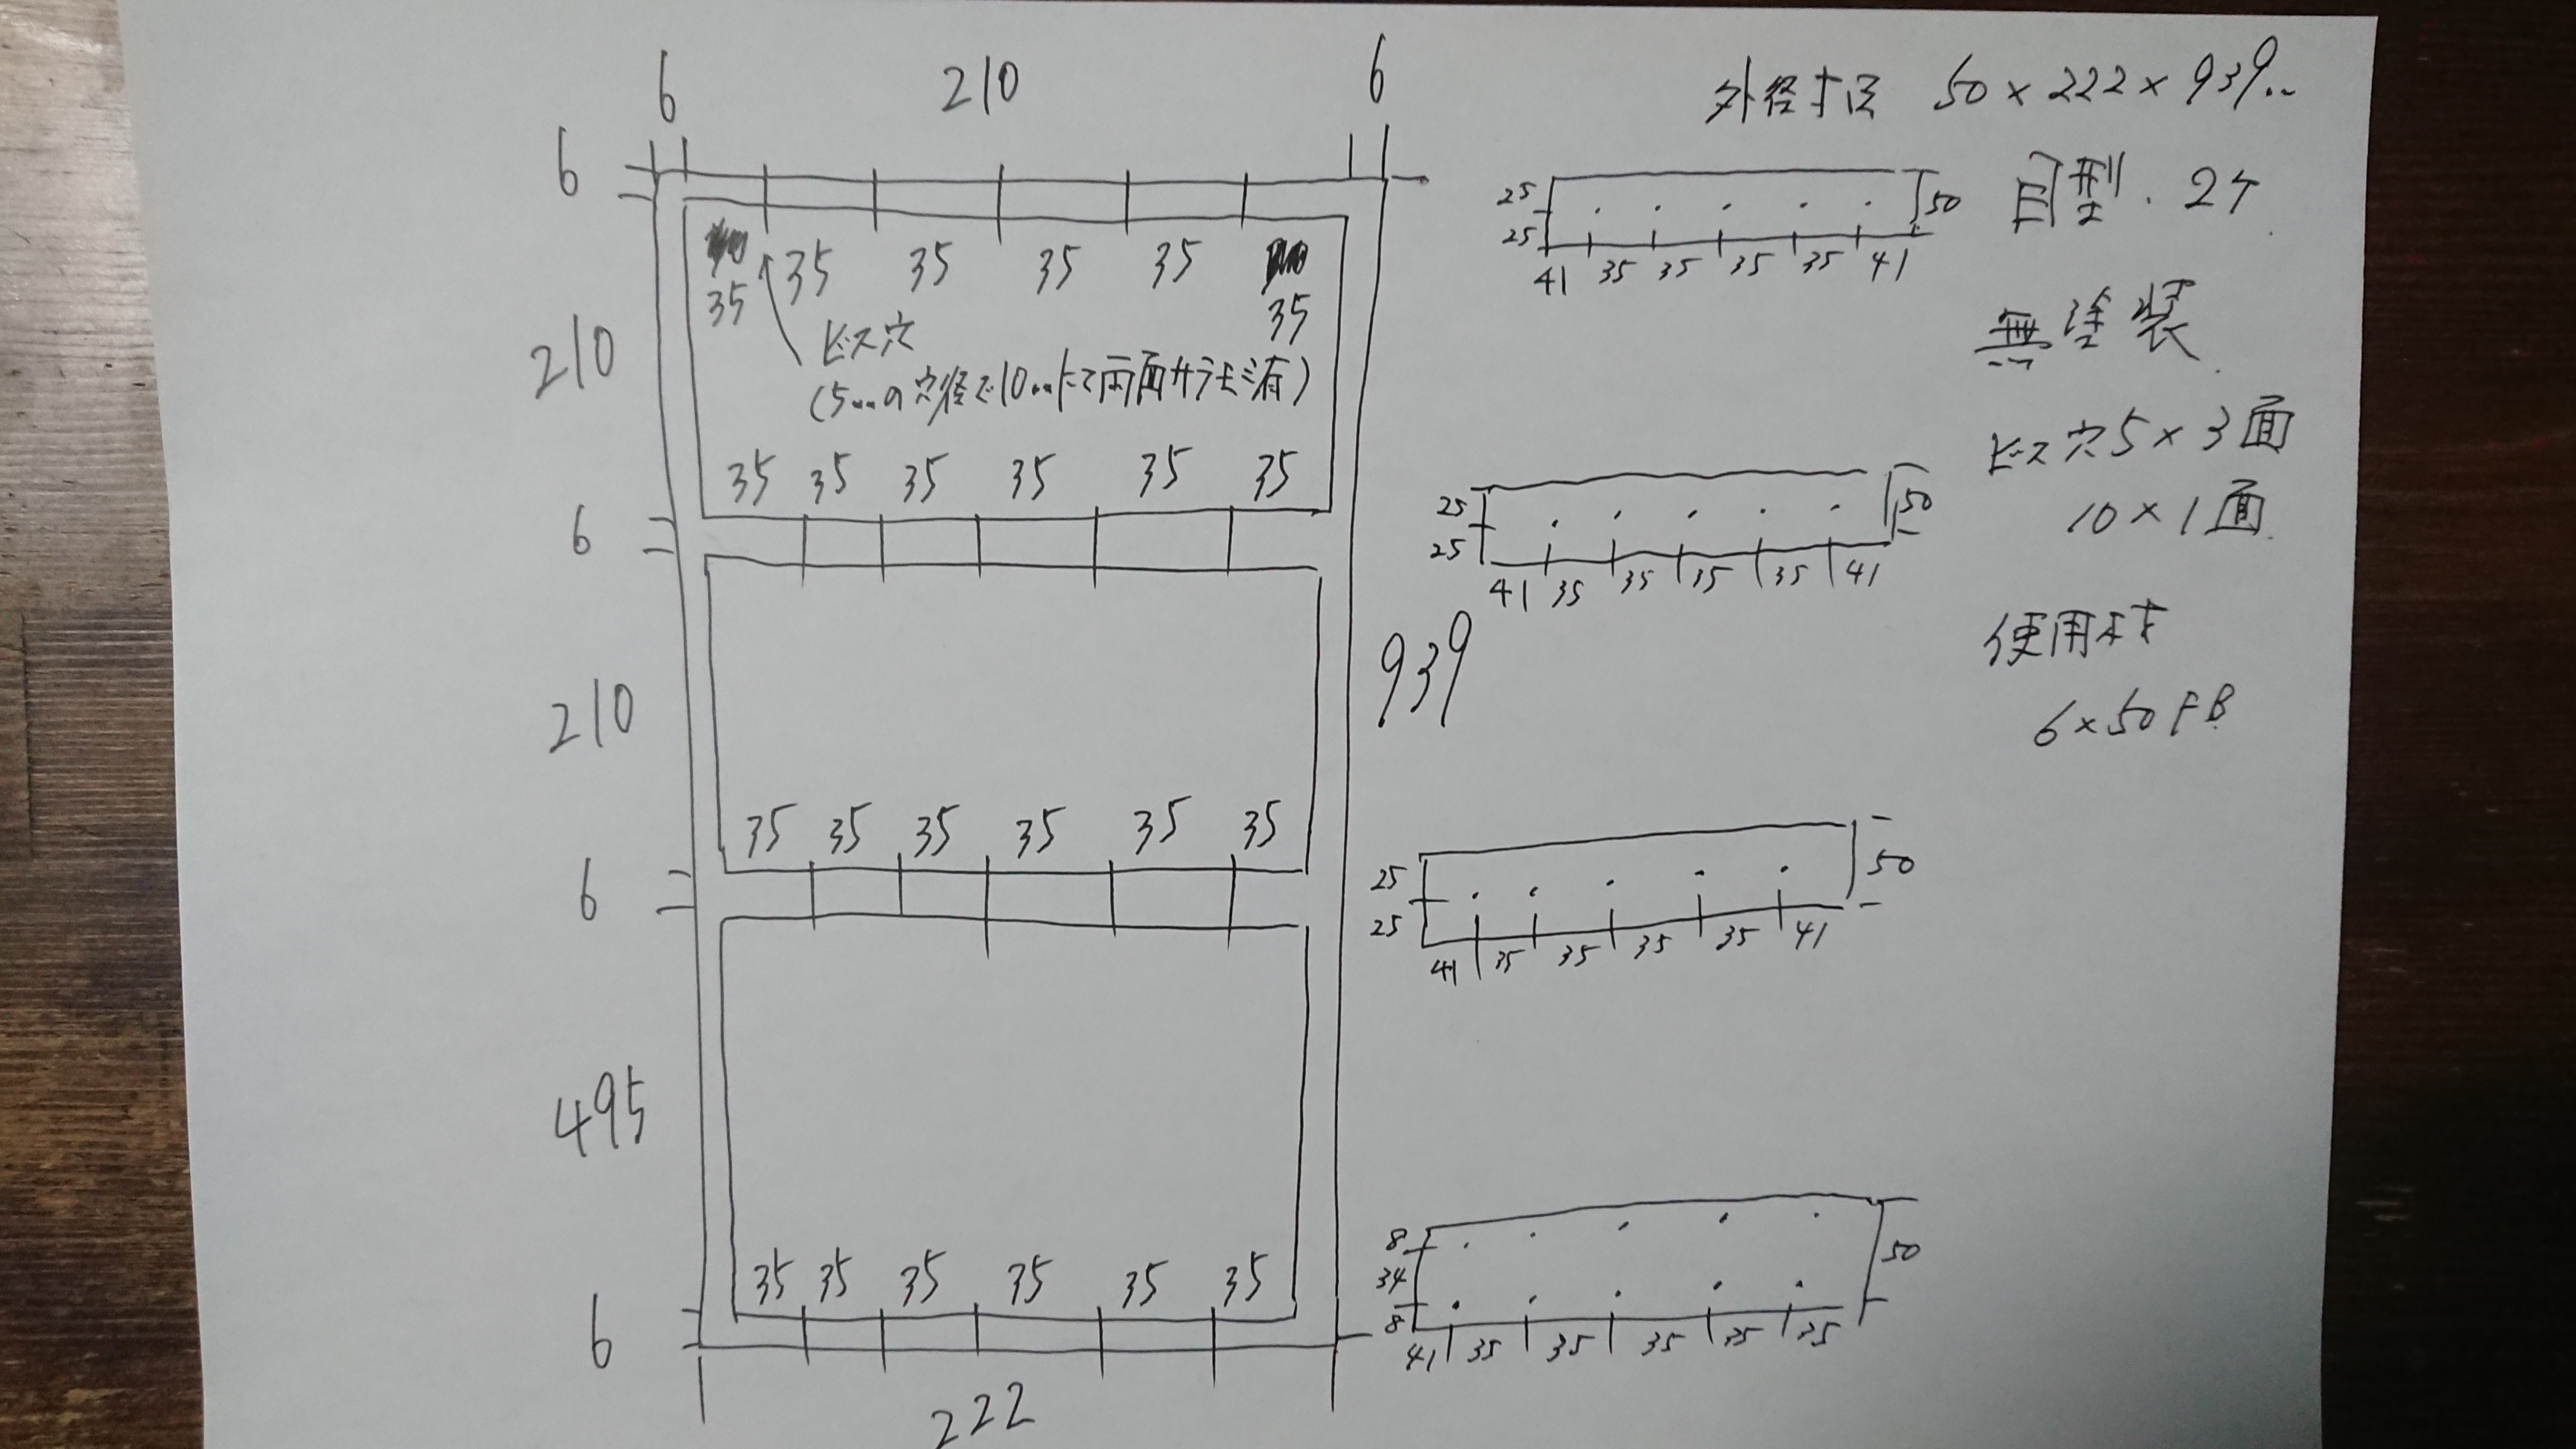 6 210 6
6
35 35 35 35 35 35
210
ビス穴
(5mmの穴径で10mmにて両面サラモミ有)
35 35 35 35 35 35
6
210
939
35 35 35 35 35 35
6
495
35 35 35 35 35 35
6
222
外径寸法 50×222×939mm
目型. 2ケ
無塗装
ビス穴5×3面
10×1面
使用材
6×50FB
25
25
50
41 35 35 35 35 41
25
25
50
41 35 35 35 35 41
25
25
50
41 35 35 35 35 41
8
34
8
50
41 35 35 35 35 35